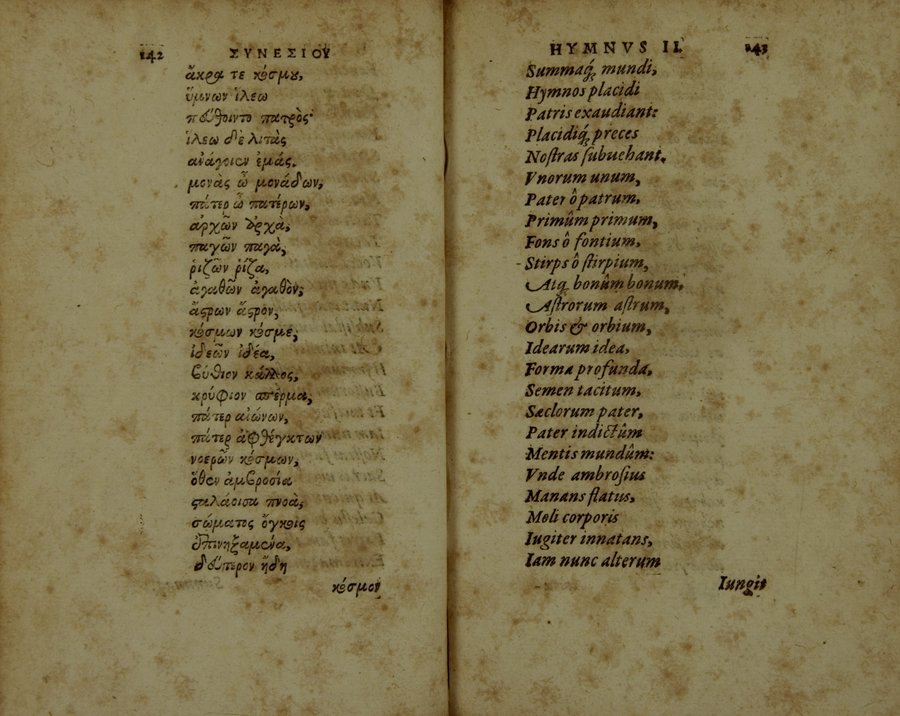 142 ΣΥΝΕΣΙΟΥ
ἄκρα τε κόσμου,
ὕμνων ἵλεω
πεύθοιντο πατρὸς·
ἵλεω δὲ λιτὰς
ἀνάγοιεν ἐμάς.
μονὰς ὦ μονάδων,
πάτερ ὦ πατέρων,
ἀρχῶν ἀρχά,
παγῶν παγὰ,
ῥιζῶν ῥίζα,
ἀγαθῶν ἀγαθὸν,
ἄστρων ἄστρον,
κόσμων κόσμε,
ἰδεῶν ἰδέα,
βύθιον κάλλος,
κρύφιον σπέρμα,
πάτερ αἰώνων,
πάτερ ἀφθέγκτων
νοερῶν κόσμων,
ὅθεν ἀμβροσία
σταλάοισα πνοὰ,
σώματος ὄγκοις
ἐπινηξαμένα,
δεύτερον ἤδη
κόσμον
HYMNVS II. 243
Summaq́; mundi,
Hymnos placidi
Patris exaudiant:
Placidiq́; preces
Nostras subuehant.
Vnorum unum,
Pater ô patrum,
Primûm primum,
Fons ô fontium,
Stirps ô stirpium,
Atq; bonûm bonum,
Astrorum astrum,
Orbis & orbium,
Idearum idea,
Forma profunda,
Semen tacitum,
Saeclorum pater,
Pater indictûm
Mentis mundûm:
Vnde ambrosius
Manans flatus,
Moli corporis
Iugiter innatans,
Iam nunc alterum
Iungit